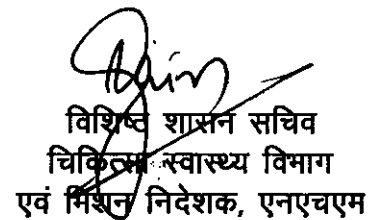 विशिष्ट शासन सचिव
चिकित्सा स्वास्थ्य विभाग
एवं मिशन निदेशक, एनएचएम